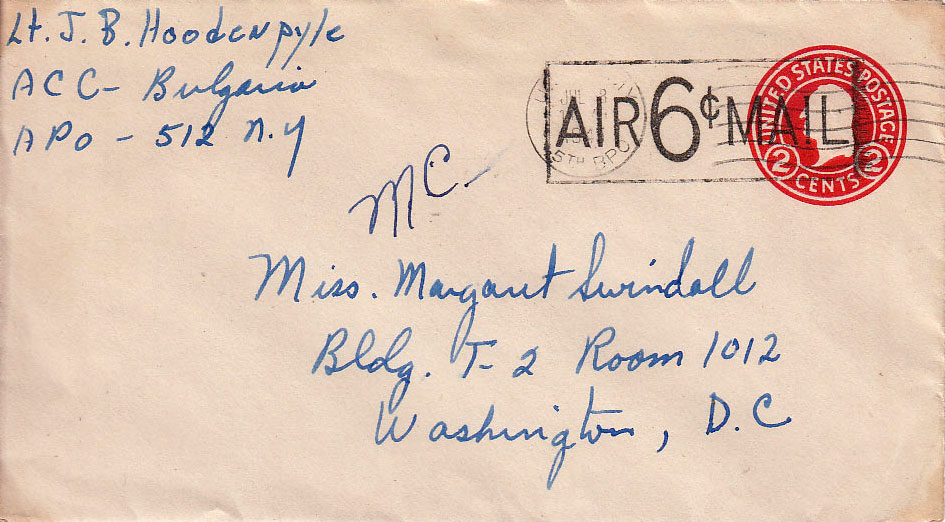 Lt. J. B. Hoodenpyle
ACC - Bulgaria
APO - 512 N.Y
AIR 6¢ MAIL
UNITED STATES POSTAGE
2 CENTS 2
MC
Miss. Margaret Swindall
Bldg. T-2 Room 1012
Washington, D.C